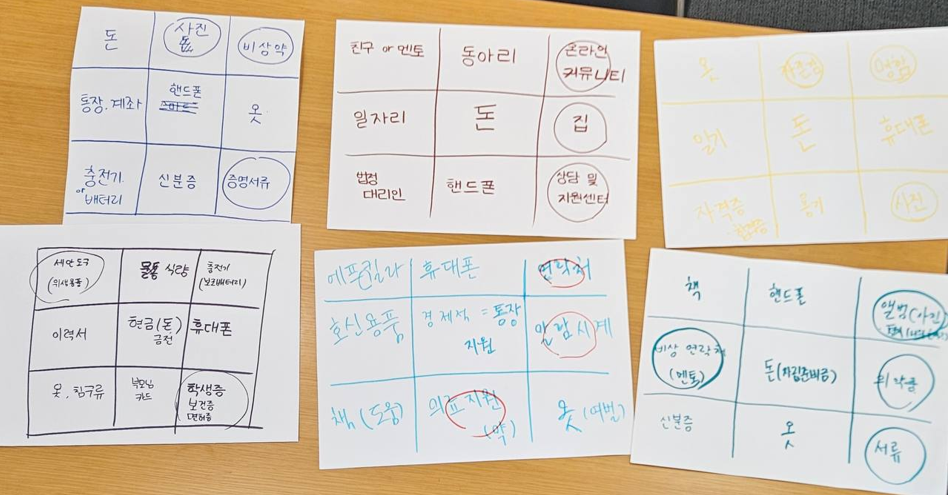 돈 사진 비상약
통장.계좌 핸드폰 옷
충전기 신분증 증명서류
or
배터리
친구 or 멘토 동아리 온라인
커뮤니티
일자리 돈 집
법정 핸드폰 상담 및
대리인 지원센터
옷
일기 돈 휴대폰
자격증 용기 사진
세안도구 식량 충전기
(위생용품) (보조배터리)
이력서 현금(돈) 휴대폰
금전
옷, 침구류 부모님 학생증
카드 보건증
면허증
에프킬라 휴대폰 연락처
호신용품 경제적 = 통장 알람시계
지원
책(도움) 의료지원 옷(여벌)
(약)
책 핸드폰 앨범(사진)
비상 연락처 돈(자립준비금) 의약품
(멘토)
신분증 옷 서류